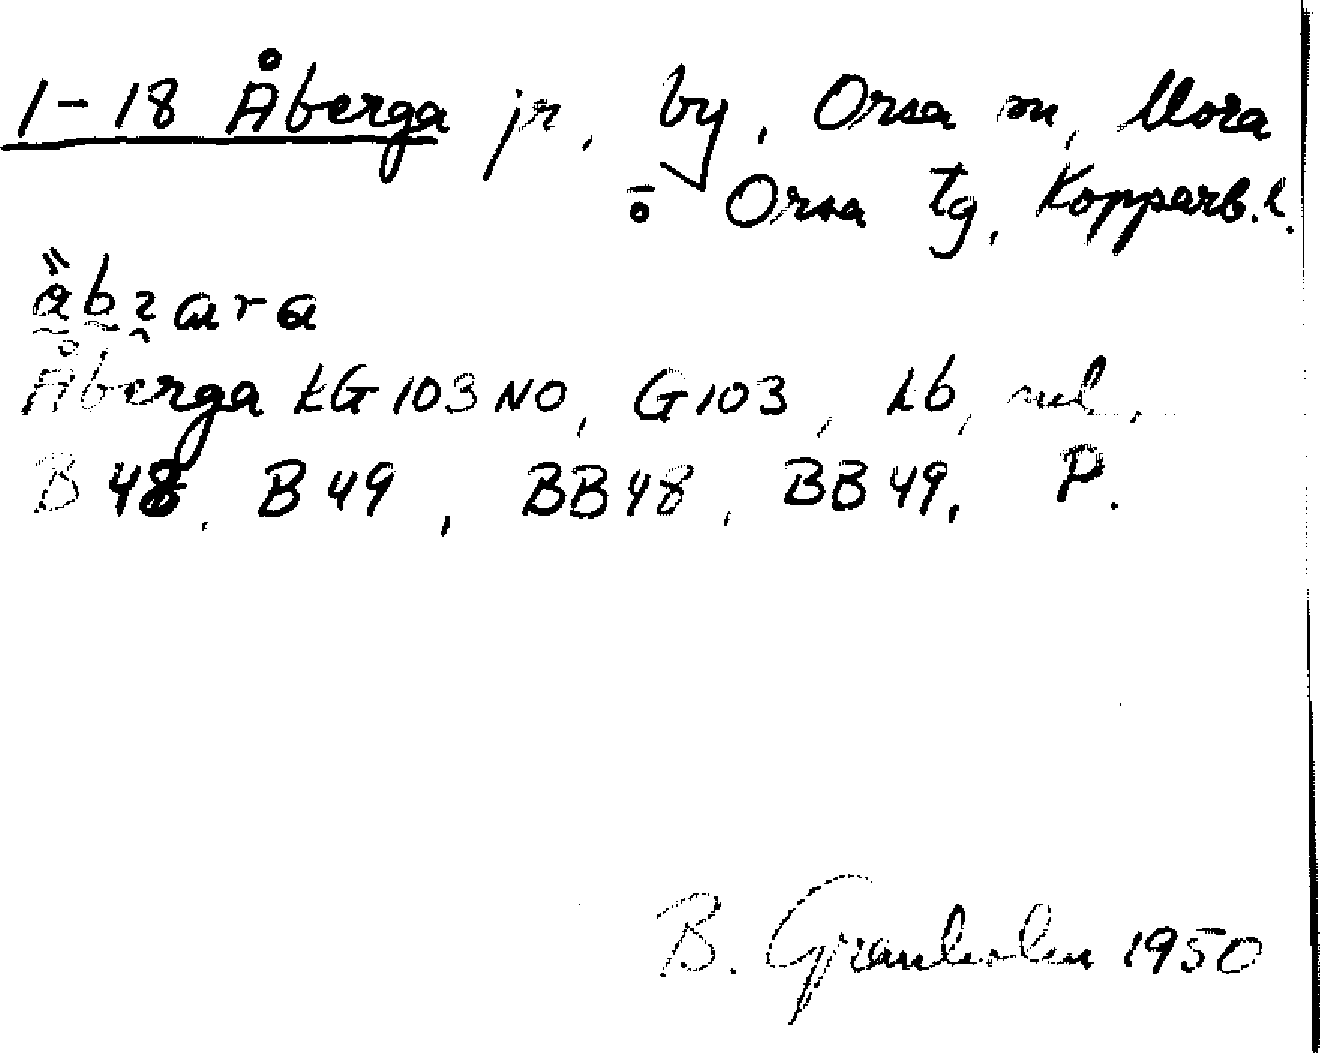 1-18 Åberga jr, by, Orsa sn, Mora
o Orsa tg, Kopparb. l.
Åberga LG 103 NO, G 103, Lb, rul,
B 48, B 49, BB 48, BB 49, P.
B. Granholm 1950